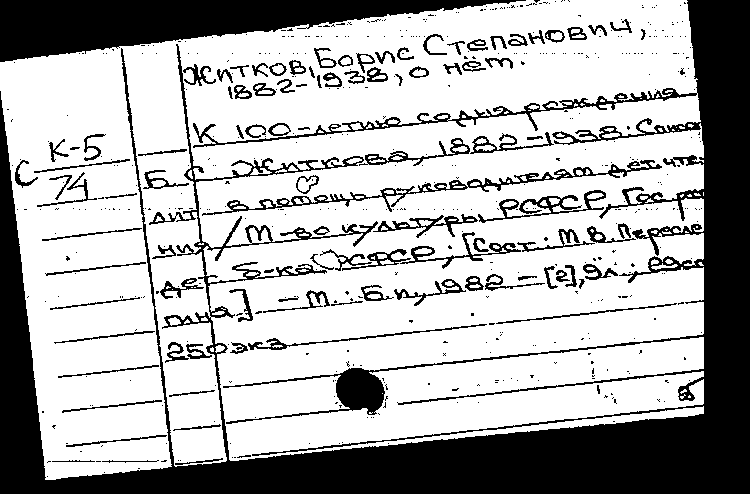 Житков, Борис Степанович,
1882-1938, о нём.
К 100-летию со дня рождения
С К-5
74
Б. С. Житкова, 1882-1938: Список
лит в помощь руководителям дет. чте-
ния / М-во культуры РСФСР, Гос. рес
дет б-ка РСФСР; [Сост.: М.В. Пересле
гина]. - М.: Б.и., 1982 - [2], 9 л.; 29 см
250 экз